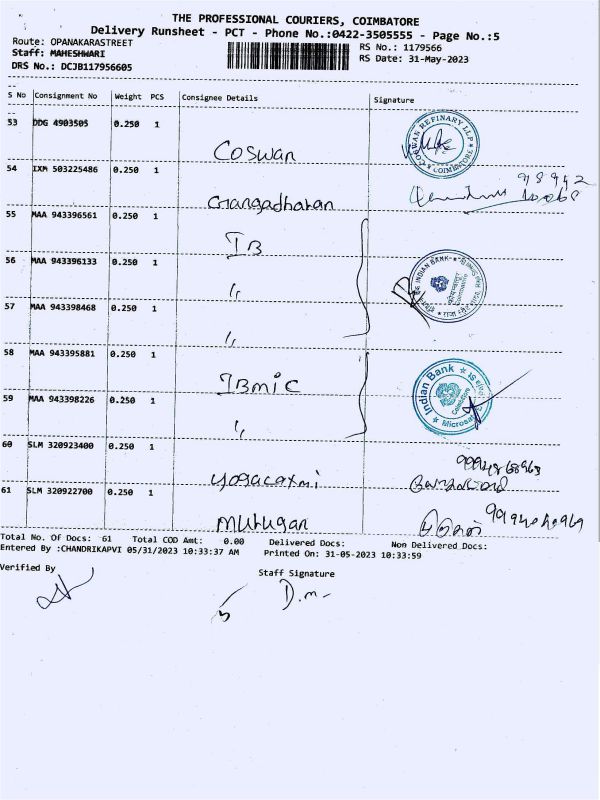 THE PROFESSIONAL COURIERS, COIMBATORE
Delivery Runsheet - PCT - Phone No.:0422-3505555 - Page No.:5
Route: OPANAKARASTREET
RS No.: 1179566
Staff: MAHESHWARI
RS Date: 31-May-2023
DRS No.: DCJB117956605
S No Consignment No Weight PCS Consignee Details Signature
53 DDG 4903505 0.250 1
Coswan
COSWAN REFINARY LLP
COIMBATORE
54 IXM 503225486 0.250 1
Gangadharan
55 MAA 943396561 0.250 1
IB
56 MAA 943396133 0.250 1
"
INDIAN BANK
57 MAA 943398468 0.250 1
"
58 MAA 943395881 0.250 1
IBMIC
Indian Bank
Coimbatore
59 MAA 943398226 0.250 1
"
60 SLM 320923400 0.250 1
yogalaxmi
61 SLM 320922700 0.250 1
Murugan
Total No. Of Docs: 61 Total COD Amt: 0.00 Delivered Docs: Non Delivered Docs:
Entered By :CHANDRIKAPVI 05/31/2023 10:33:37 AM Printed On: 31-05-2023 10:33:59
Verified By
Staff Signature
D.m-